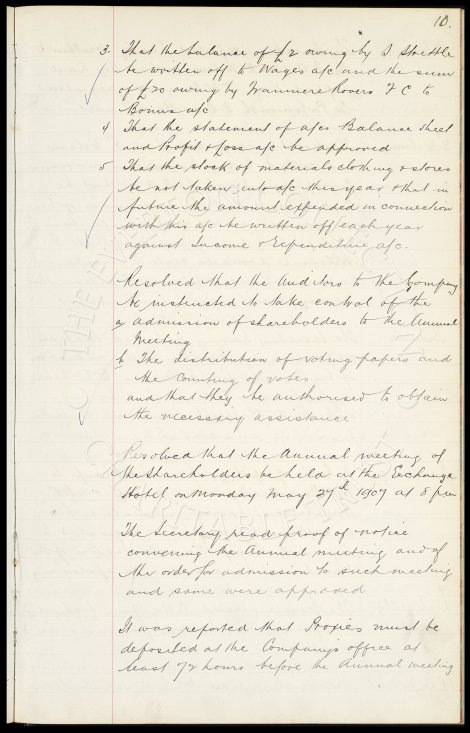 10.
3. That the balance of £2 owing by D Strettle
be written off to Wages a/c and the sum
of £20 owing by Tranmere Rovers F C to
Bonus a/c
4 That the statement of a/cs Balance Sheet
and Profit & Loss a/c be approved
5 That the stock of materials clothing & stores
be not taken into a/c this year & that in
future the amount expended in connection
with this a/c be written off each year
against Income & Expenditure a/c.
Resolved that the Auditors to the Company
be instructed to take control of the
a/ admission of shareholders to the Annual
Meeting
b The distribution of voting papers and
the counting of votes
and that they be authorised to obtain
the necessary assistance
Resolved that the Annual meeting of
the Shareholders be held at the Exchange
Hotel on Monday May 27th 1907 at 8 pm
The Secretary read proof of notice
convening the Annual meeting and of
the order for admission to such meeting
and same were approved
It was reported that Proxies must be
deposited at the Company's office at
least 72 hours before the Annual meeting